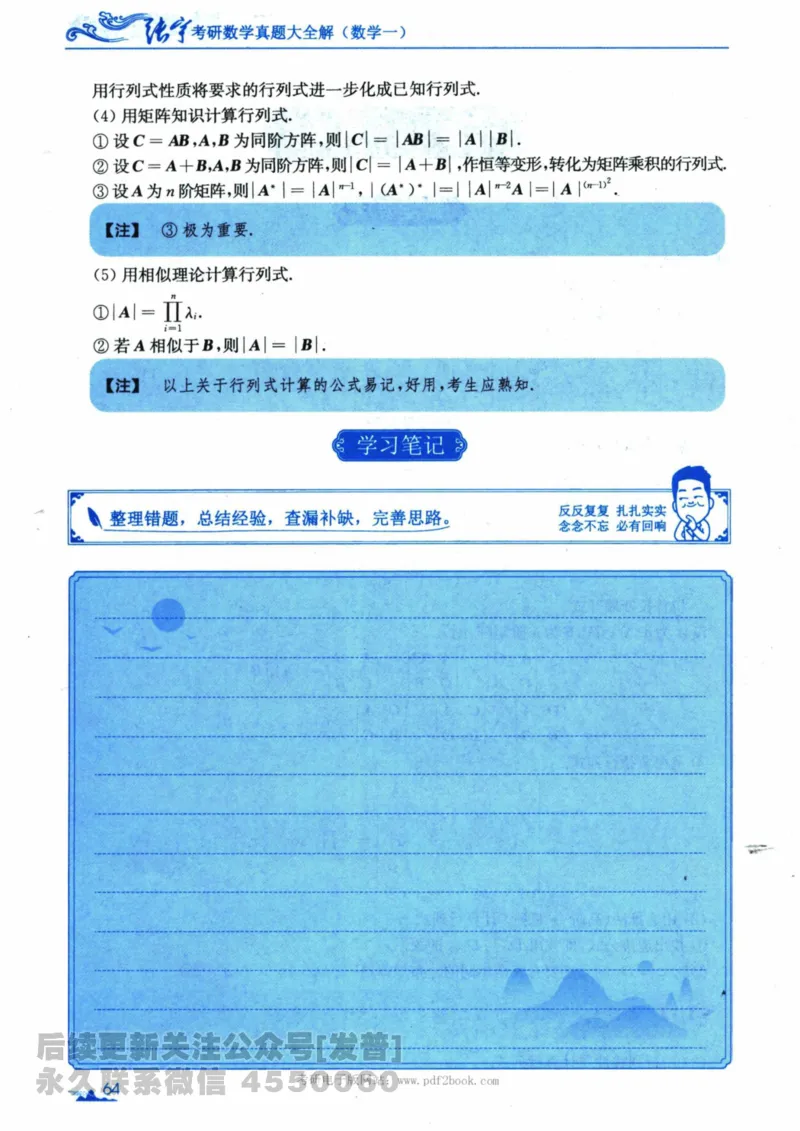 张宇考研数学真题大全解(数学一)
用行列式性质将要求的行列式进一步化成已知行列式.
(4) 用矩阵知识计算行列式.
① 设 C = AB,A,B 为同阶方阵,则|C| = |AB| = |A||B|.
② 设 C = A+B,A,B 为同阶方阵,则|C| = |A+B|,作恒等变形,转化为矩阵乘积的行列式.
③ 设 A 为 n 阶矩阵,则|A*| = |A|ⁿ⁻¹,|(A*)*| = ||A|ⁿ⁻²A| = |A|^{(n-1)²}.
【注】 ③ 极为重要.
(5) 用相似理论计算行列式.
①|A| = ∏_{i=1}^{n} λᵢ.
② 若 A 相似于 B,则|A| = |B|.
【注】 以上关于行列式计算的公式易记,好用,考生应熟知.
学习笔记
整理错题,总结经验,查漏补缺,完善思路。
反反复复 扎扎实实
念念不忘 必有回响
后续更新关注公众号[发普]
永久联系微信 4550060
64
考研电子版网站: www.pdf2book.com